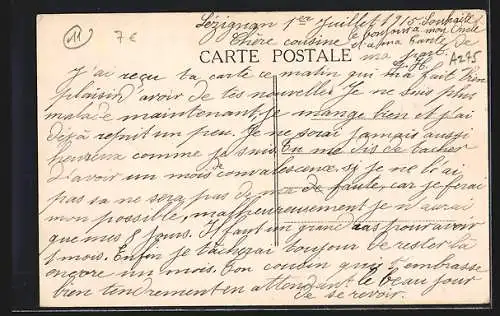 11
7€
Lézignan 1er Juillet 1915 Souhaite
Chère cousine le bonjour a mon Oncle
et a ma tante de
ma part.
A275
CARTE POSTALE
J'ai reçu ta carte ce matin qui m'a fait bien
plaisir d'avoir de tes nouvelles. Je ne suis plus
malade maintenant je mange bien et j'ai
déjà refait un peu. Je ne serai jamais aussi
heureux comme je suis. Tu me dis de tacher
d'avoir un mois de convalescence, si je ne l'ai
pas sa ne sera pas de ma faute, car je ferai
mon possible, malheureusement je n'aurai
que mes 8 jours. Il faut un grand cas pour avoir
1 mois. Enfin je tacherai toujour de rester la
encore un mois. Ton cousin qui t'embrasse
bien tendrement en attendant le beau jour
de se revoir.